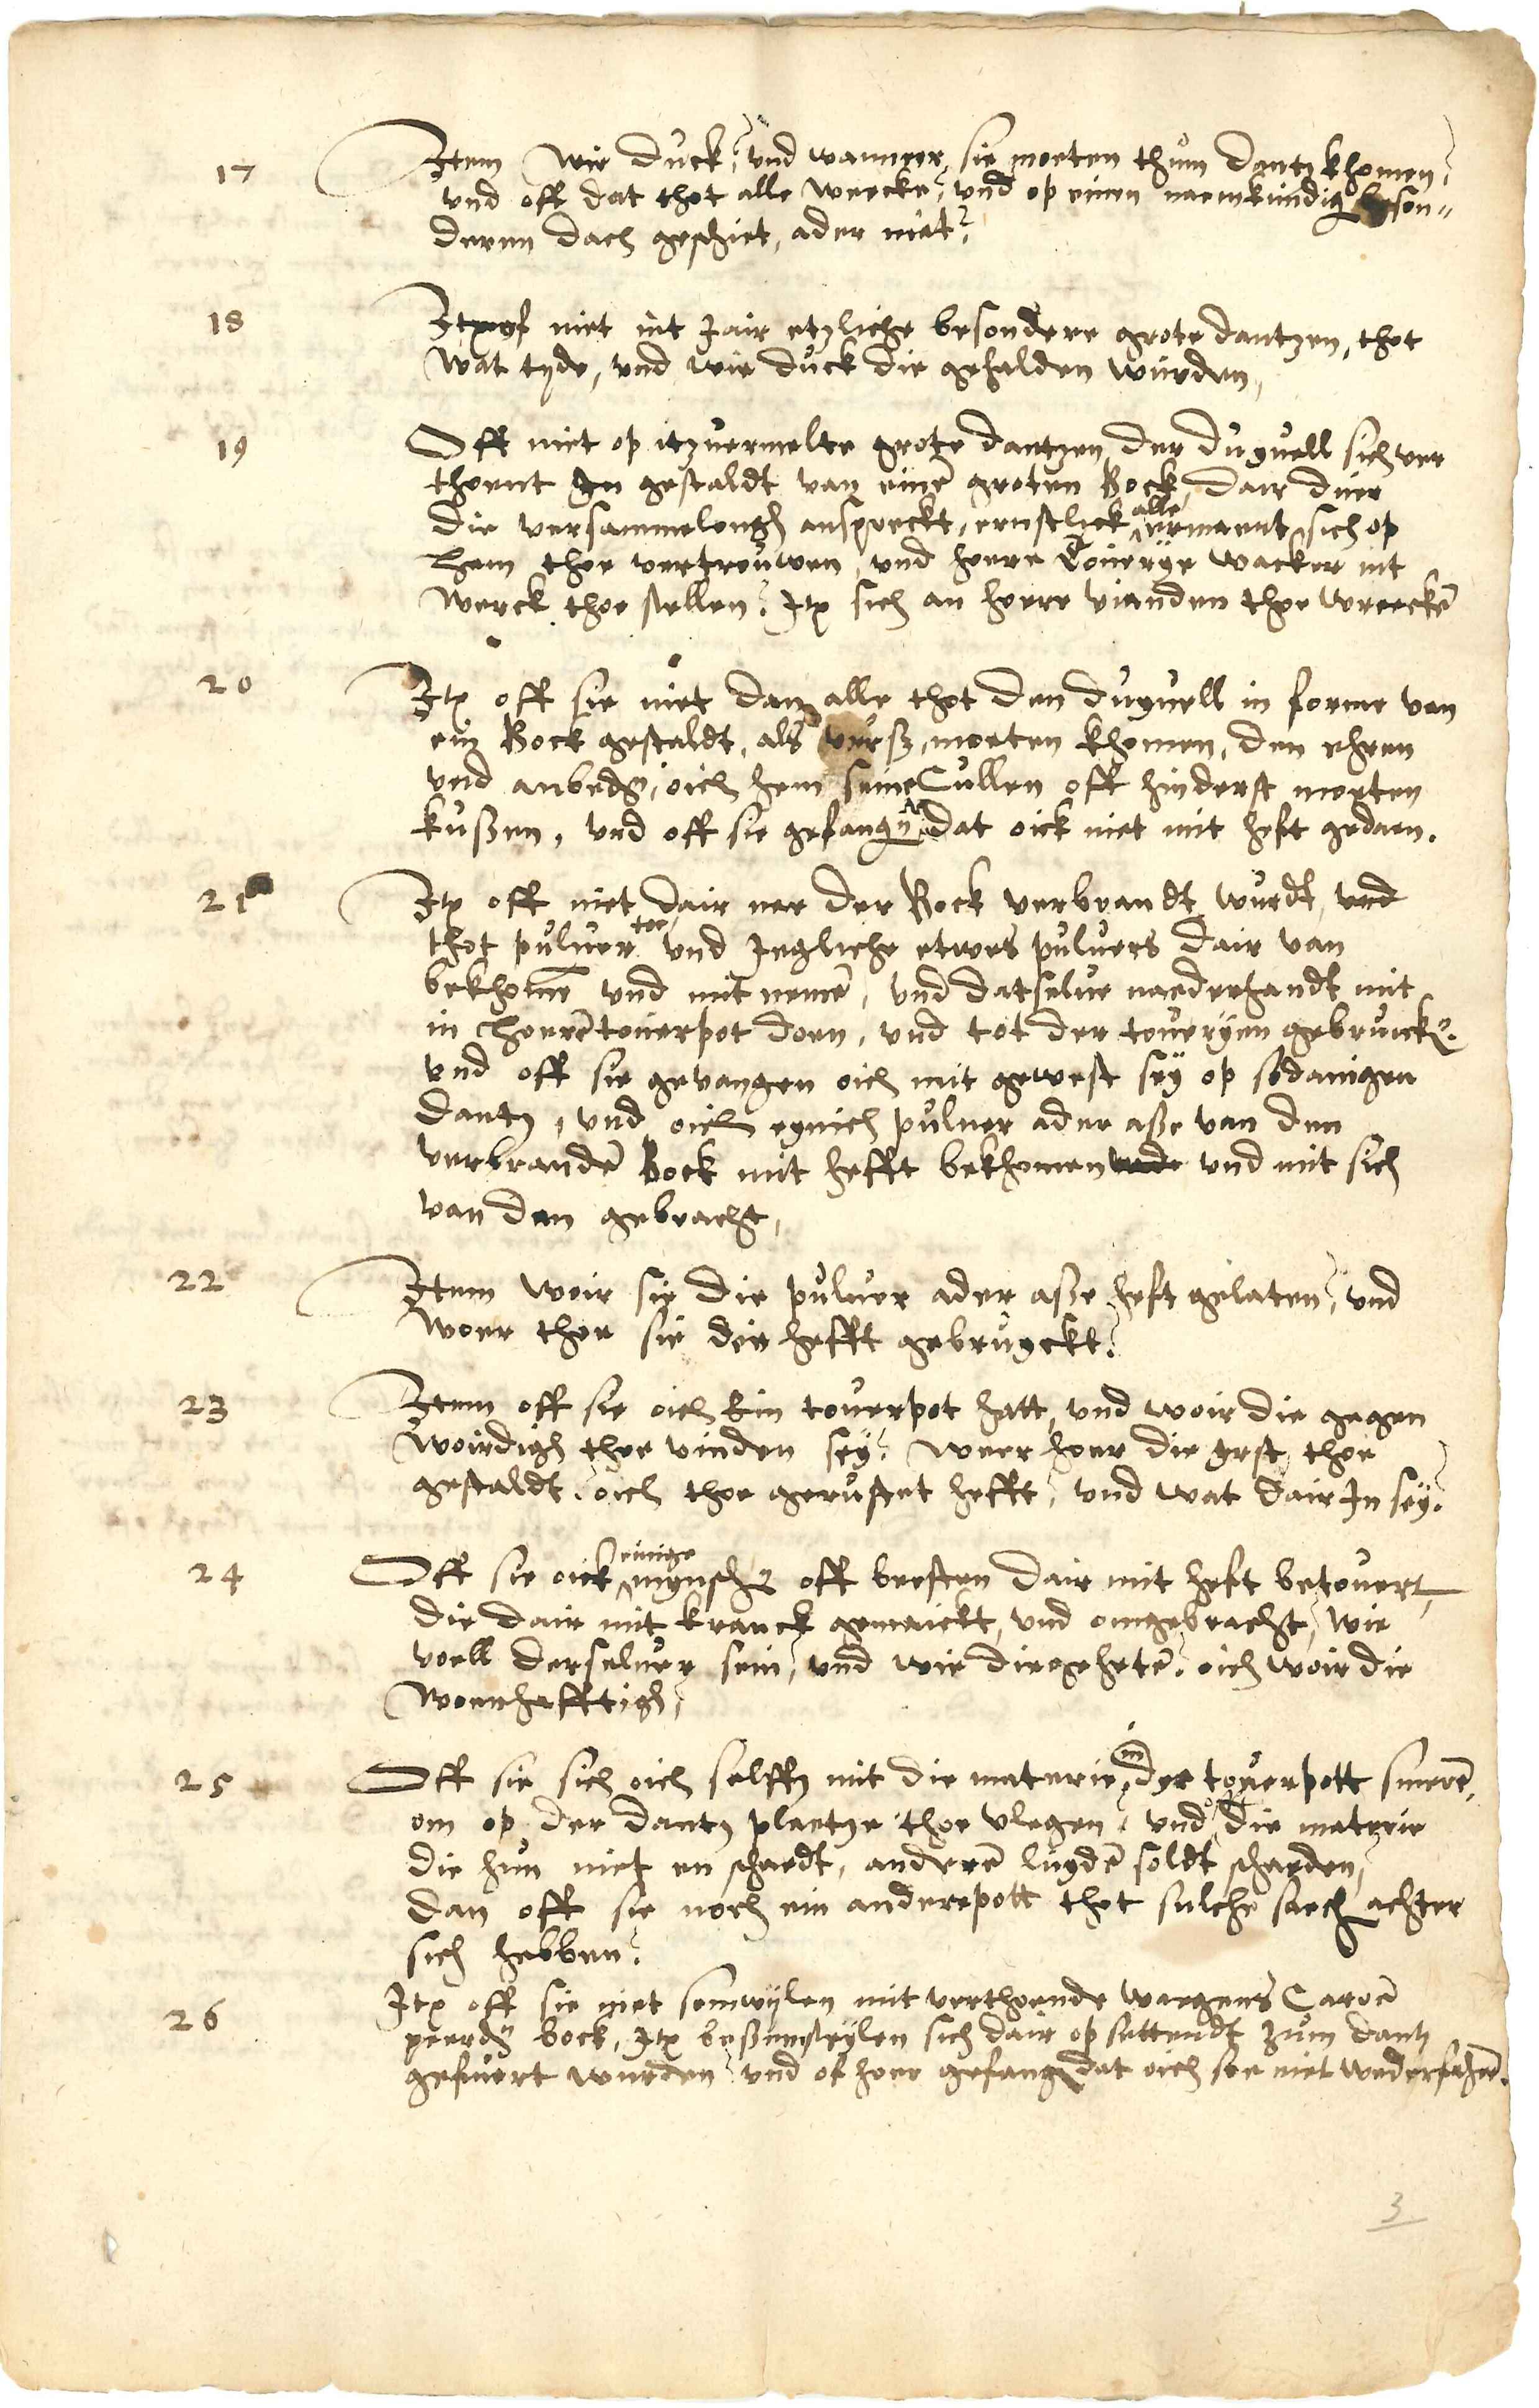 17 Item wie duck, und wanneer sie moeten thum dantz khomen,
und off dat thot alle weecke, und op einen naemkundig beson„
deren dach geschiet, ader niet?
18 Item off niet int Jair etzliche besondere grote dantzen, thot
wat tyde, und wie duck die gehalden wurden,
19 Off niet op itzvermelte grote dantzen der duyuell sich ver
thoent In gestaldt van eine groten Bock, dair dier
die versammelongh anspreckt, ernstlick alle vermaent, sich op
hem thoe vertrouwen, und hoere Toverye wacker int
werck thoe stellen? Itm sich an hoere vianden thoe wreecken
20 Itm off sie niet dan alle thot den duyuell in forme van
ein Bock gestaldt, als moeten khomen, den ehren
und anbeden, oich hem seine Cullen off hinderst moeten
kussen, und off sie gefangen dat oick niet mit heft gedaen.
21 Itm off niet dair nae der Bock verbrandt wurdt, und
thot puluer toe und Jegliche etwes puluers dair van
bekhomen und mit nemen, und datselue naederhandt mit
in hoeren touerpot doen, und tot der toueryen gebruicken?
und off sie gevangen oich mit gewest sey op sodanigen
dantz, und oich eynich puluer ader asse van den
verbranden Bock mit hefft bekhomen und mit sich
van dan gebracht,
22 Item woir sie die puluer ader asse heft gelaten, und
woer thoe sie die hefft gebruyckt?
23 Item off sie oich Ein touerpot hatt, und woir die gegen
woirdigh thoe vinden sey? weer hoer die yrst thoe
gestaldt, oich thoe gerustet hefft, und wat dair In sey?
24 Off sie oick einige mynschen off beesten dair mit heft betouert,
die dair mit kranck gemaickt, und omgebracht, wie
voell derseluer sein, und wie die geheten, oich woir die
woenhefftigh,
25 Off sie sich oich selffz mit die materie in dye touerpott smeren,
om op der dantz plaetze thoe vlegen, und die materie
die hun niet en schaedt, anderen luyden soldt schaeden,
dan off sie noch ein anderepott thot sulche saech achter
sich hebben?
26 Itm off sie niet somwylen mit verthoende waegens Carocen
peerden bock, Itm bessemsteylen sich dair op settendt zum dantz
gefuert wurden und of hoer gefangen dat oich soe niet wederfahren.
3